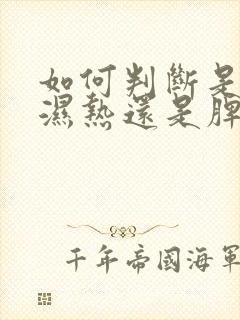 如何判斷是
濕熱還是脾
千年帝國海軍